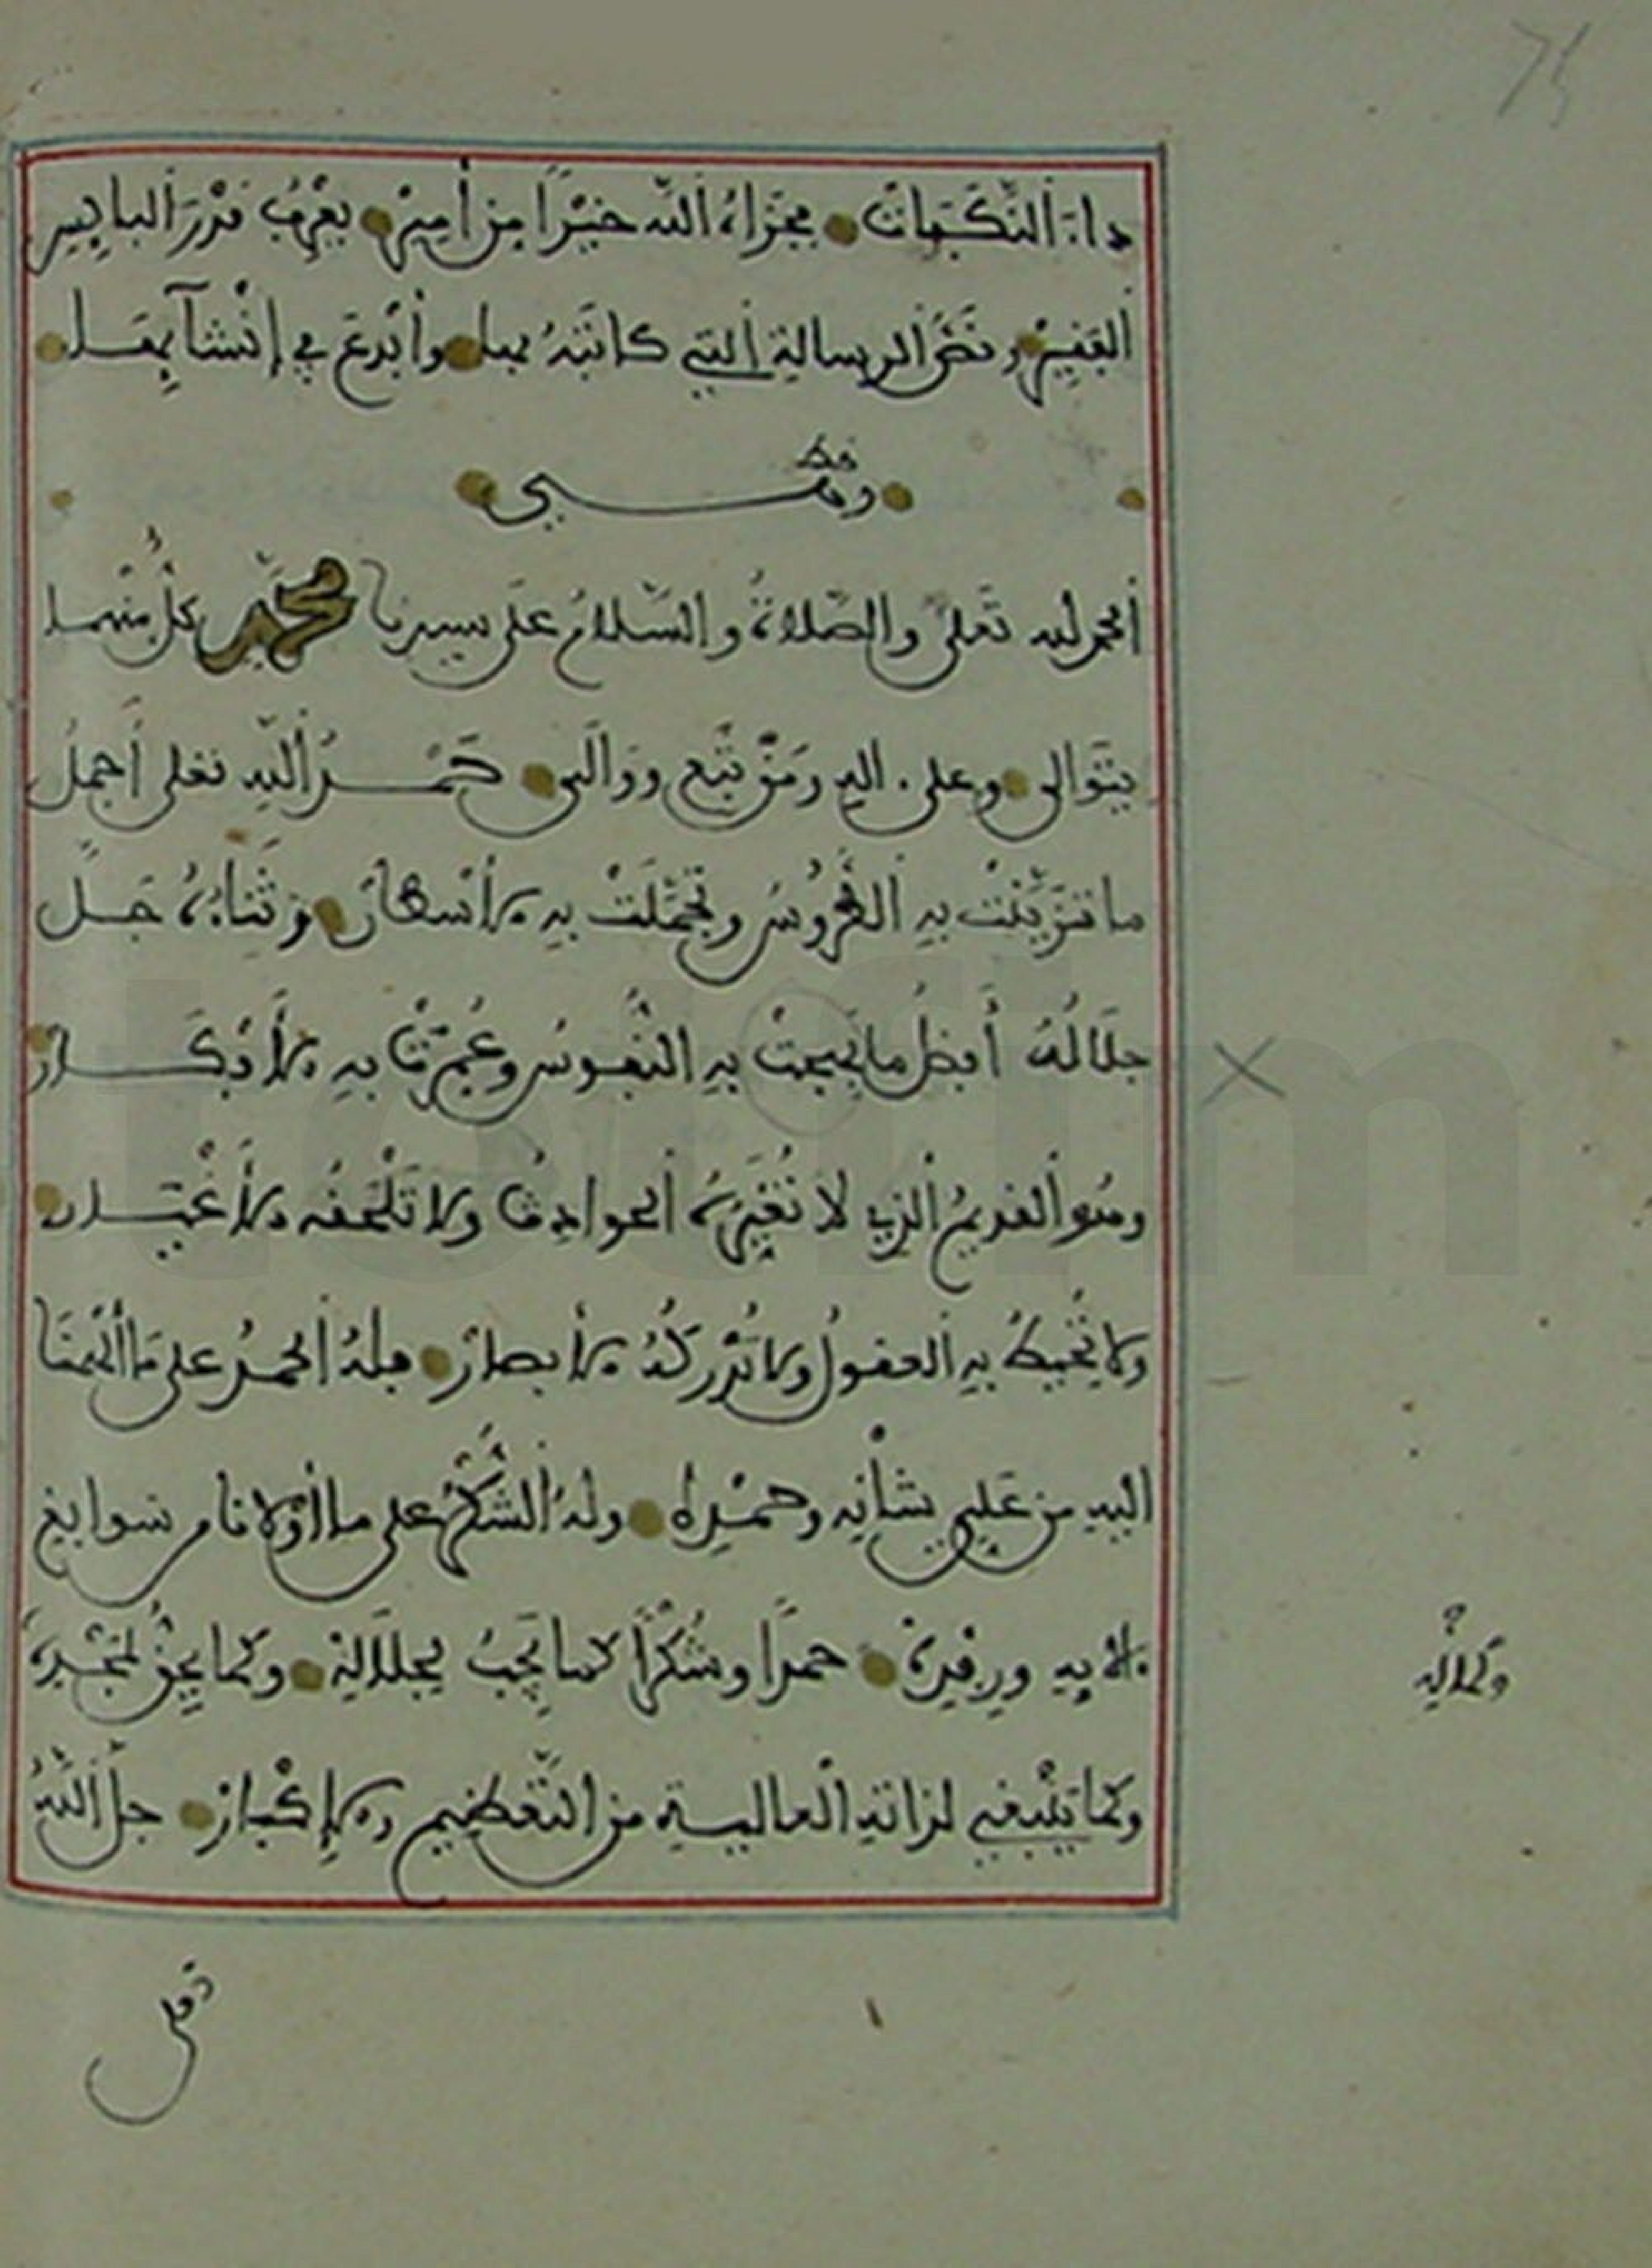 داء النكبات فجزاه الله خيرا من أمير يعرف قدر البايس
الفقير ونص الرسالة التي كاتبته بها وأبدع في إنشآيها
وهي
الحمد لله تعلى والصلاة والسلام على سيدنا محمد كل منهما
يتوالى وعلى ءاله ومن تبع ووالى حمد الله تعلى أجمل
ما تزينت به الطروس وتجملت به الأسفار وثناءه جل
جلاله أفضل ما بهجت به النفوس وعمرت به الأذكار
وهو القديم الذي لا تغيره الحوادث ولا تلحقه الأغيار
ولا تحيط به العقول ولا تدركه الأبصار فله الحمد على ما ألهمنا
اليه من علي شأنه وحمده وله الشكر على ما أولانا من سوابغ
ءالايه ورفده حمدا وشكرا كما يجب لجلاله وكما يحق لمجده
وكماله
وكما ينبغي لذاته العالية من التعظيم والإكبار جل الله
تعلى